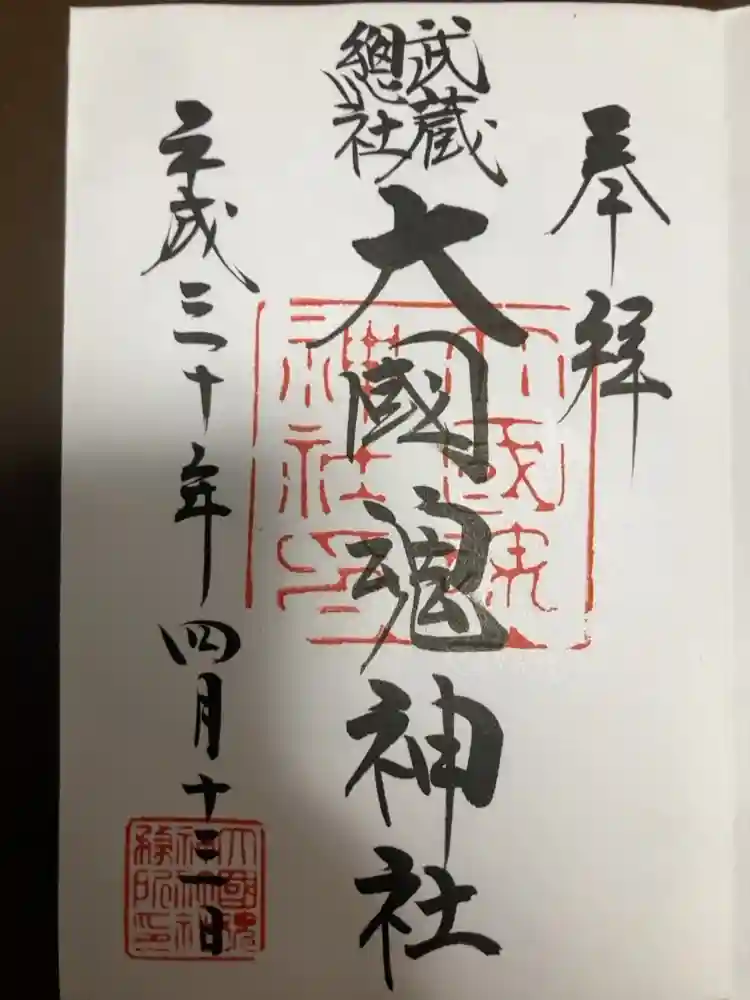 奉拝
武蔵
總社
大國魂神社
大國魂
神社印
平成三十年四月十三日
大國魂
神社社
務所印